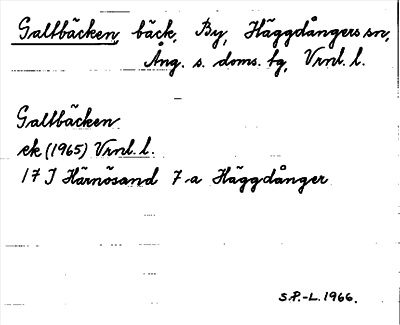 Galtbäcken, bäck, By, Häggdångers sn,
Ång. s. doms. fg, Vrnl. l.
Galtbäcken
ek (1965) Vrnl. l.
17 J Härnösand 7 a Häggdånger
S.P.-L. 1966.